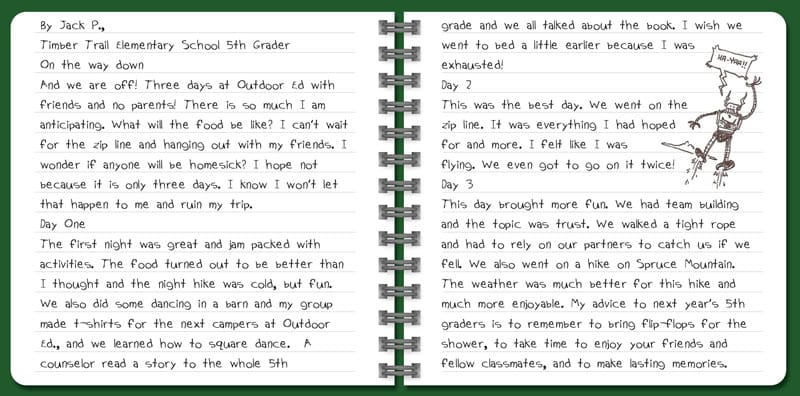 By Jack P.,
Timber Trail Elementary School 5th Grader
On the way down
And we are off! Three days at Outdoor Ed with
friends and no parents! There is so much I am
anticipating. What will the food be like? I can't wait
for the zip line and hanging out with my friends. I
wonder if anyone will be homesick? I hope not
because it is only three days. I know I won't let
that happen to me and ruin my trip.
Day One
The first night was great and jam packed with
activities. The food turned out to be better than
I thought and the night hike was cold, but fun.
We also did some dancing in a barn and my group
made t-shirts for the next campers at Outdoor
Ed., and we learned how to square dance. A
counselor read a story to the whole 5th
grade and we all talked about the book. I wish we
went to bed a little earlier because I was
exhausted!
Day 2
This was the best day. We went on the
zip line. It was everything I had hoped
for and more. I felt like I was
flying. We even got to go on it twice!
Day 3
This day brought more fun. We had team building
and the topic was trust. We walked a tight rope
and had to rely on our partners to catch us if we
fell. We also went on a hike on Spruce Mountain.
The weather was much better for this hike and
much more enjoyable. My advice to next year's 5th
graders is to remember to bring flip-flops for the
shower, to take time to enjoy your friends and
fellow classmates, and to make lasting memories.
HA-YAA!!